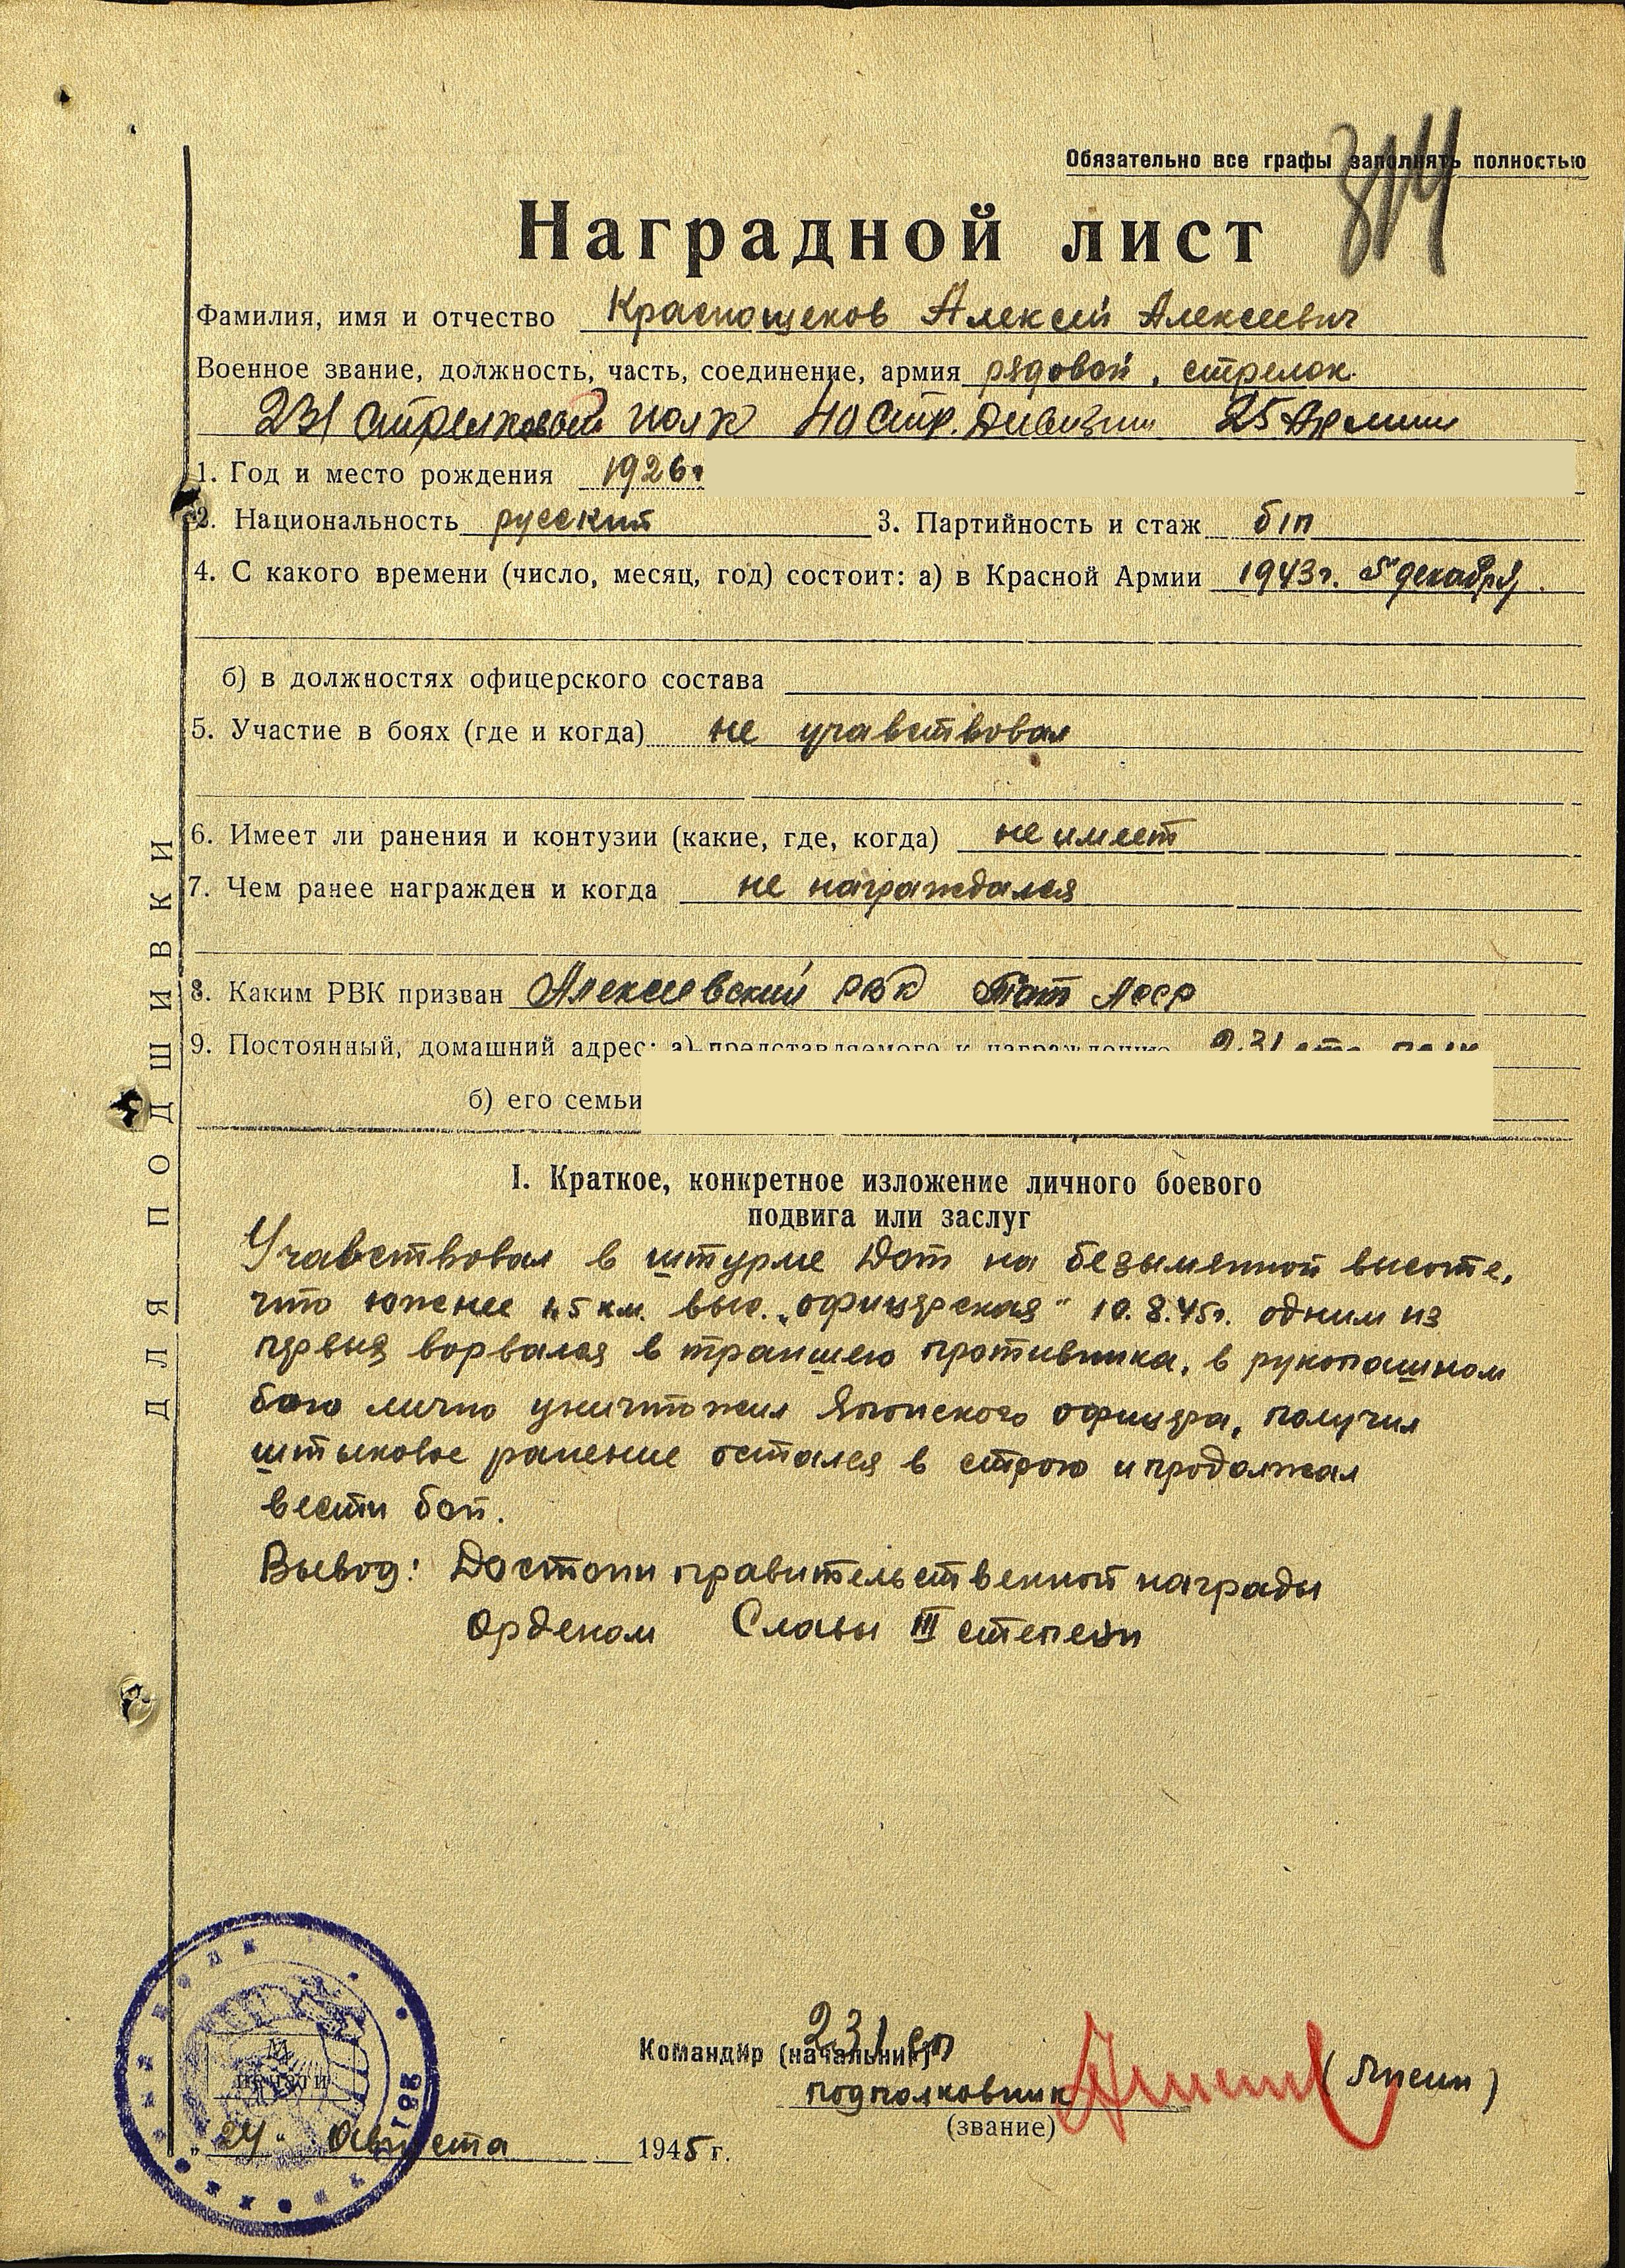 Обязательно все графы заполнять полностью
314
Наградной лист
Фамилия, имя и отчество Краснощеков Алексей Алексеевич
Военное звание, должность, часть, соединение, армия рядовой, стрелок
231 стрелковый полк 40 стр. дивизии 25 Армии
1. Год и место рождения 1926г
2. Национальность русский 3. Партийность и стаж б/п
4. С какого времени (число, месяц, год) состоит: а) в Красной Армии 1943г. 5 декабря.
б) в должностях офицерского состава
5. Участие в боях (где и когда) не учавствовал
6. Имеет ли ранения и контузии (какие, где, когда) не имеет
7. Чем ранее награжден и когда не награждался
8. Каким РВК призван Алексеевский РВК Тат АССР
9. Постоянный, домашний адрес: а) представляемого к награждению 231 стр. полк
б) его семьи
ДЛЯ ПОДШИВКИ
I. Краткое, конкретное изложение личного боевого
подвига или заслуг
Учавствовал в штурме Дот на безыменной высоте,
что южнее 1,5 км. выс. „офицерская" 10.8.45г. одним из
первыя ворвался в траншею противника, в рукопашном
бою лично уничтожил Японского офицера, получил
штыковое ранение остался в строю и продолжал
вести бой.
Вывод: Достоин правительственной награды
Орденом Славы III степени
Командир (начальник) 231 сп
подполковник (Лисин)
(звание)
М
печати
„24" Августа 1945 г.